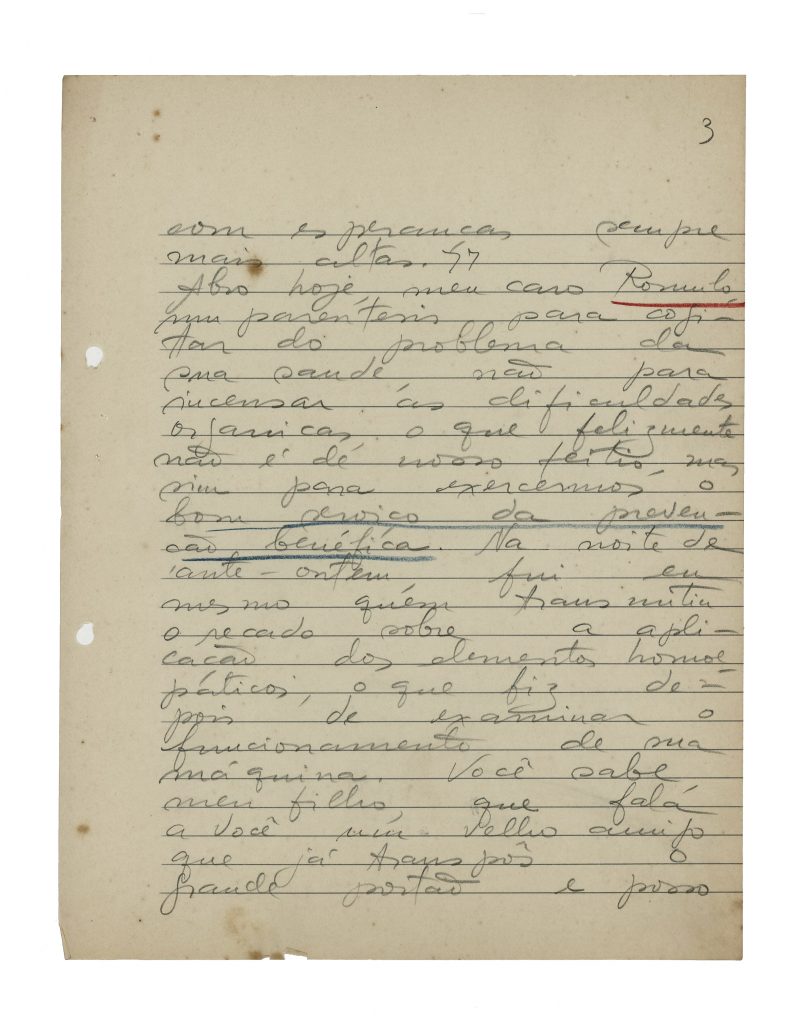 3
com esperancas sempre
mais altas.
Abro hoje, meu caro Romulo
um parêntesis para cogi-
tar do problema da
sua saude não para
incensar ás dificuldades
organicas o que felizmente
não é de nosso feitio, mas
sim para exercermos o
bom serviço da preven-
cão benéfica. Na noite de
ante-ontem, fui eu
mesmo quém transmitiu
o recado sobre a apli-
cacão dos elementos homoe
páticos, o que fiz de-
pois de examinar o
funcionamento de sua
máquina. Você sabe
meu filho, que falá
a você um velho amigo
que já transpôs o
grande portão e posso